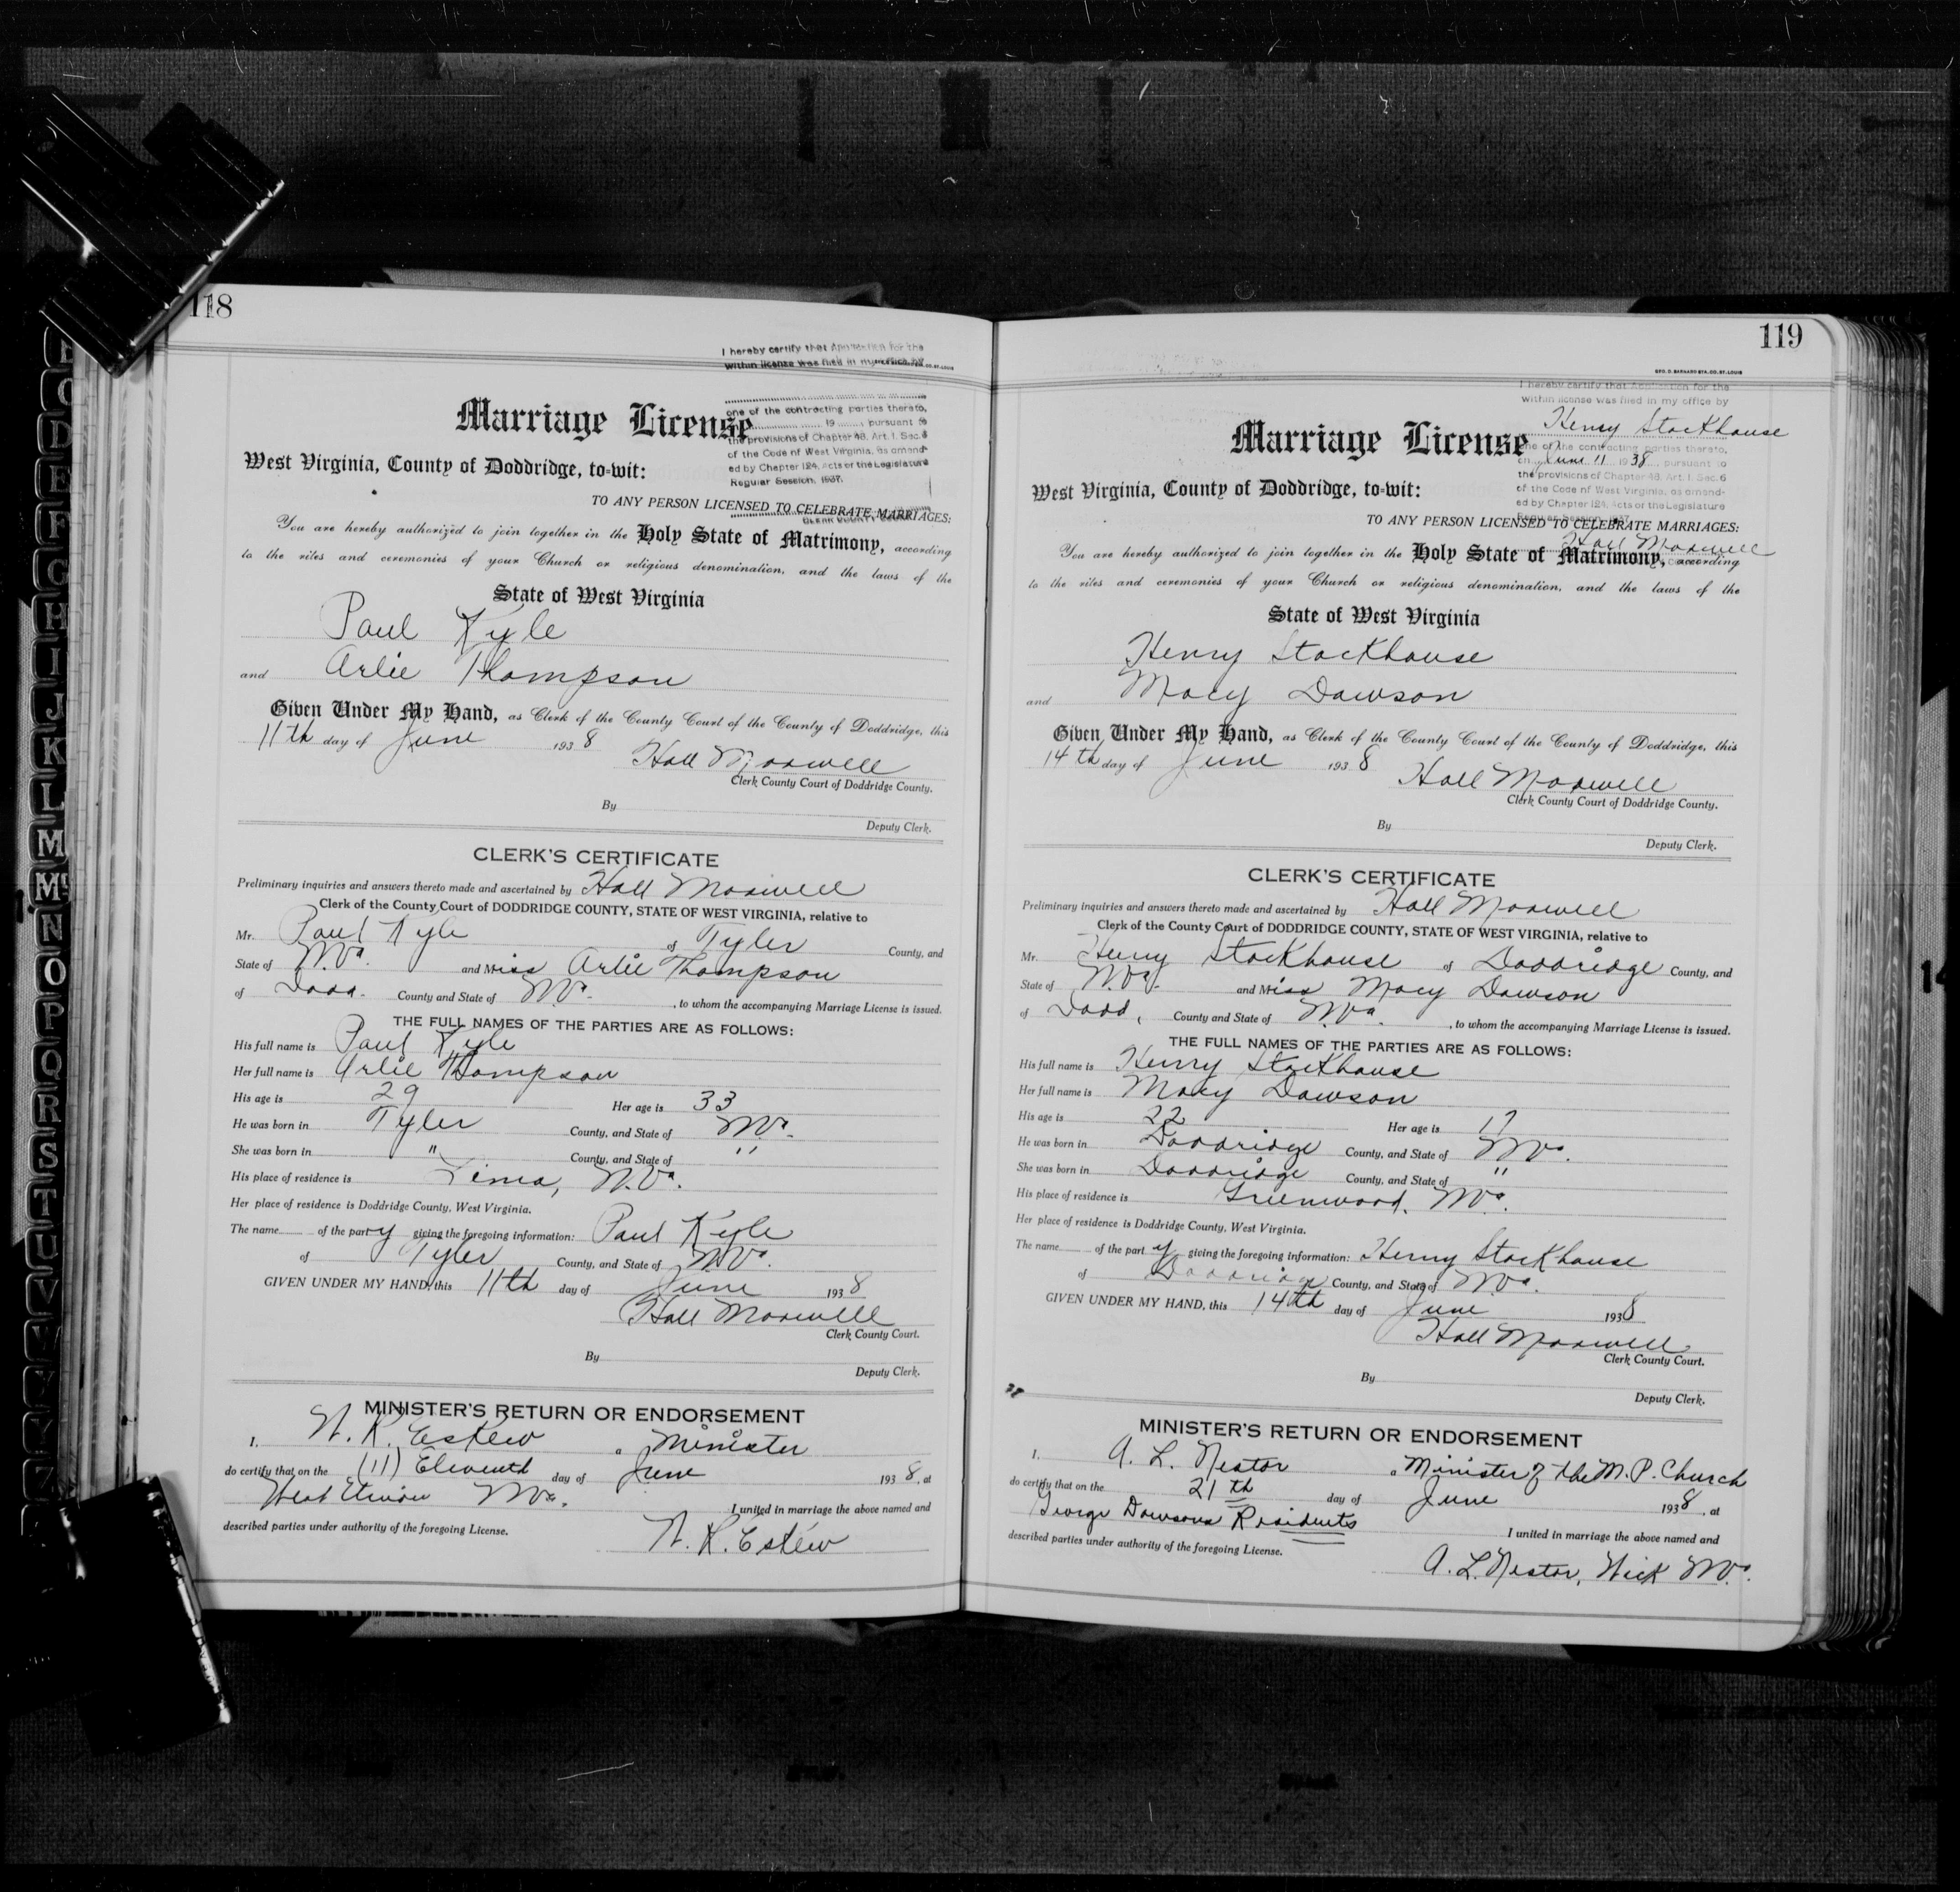 118
I hereby certify that Application for the
within license was filed in my office by
CO. ST. LOUIS
one of the contracting parties thereto,
19 pursuant to
the provisions of Chapter 48, Art. 1, Sec. 6
of the Code of West Virginia, as amend-
ed by Chapter 124, Acts of the Legislature
Regular Session, 1937.
Marriage License
West Virginia, County of Doddridge, to=wit:
TO ANY PERSON LICENSED TO CELEBRATE MARRIAGES:
You are hereby authorized to join together in the Holy State of Matrimony, according
to the rites and ceremonies of your Church or religious denomination, and the laws of the
State of West Virginia
Paul Kyle
and Arlie Thompson
Given Under My Hand, as Clerk of the County Court of the County of Doddridge, this
11th day of June 1938
Hall Maxwell
Clerk County Court of Doddridge County.
By
Deputy Clerk.
CLERK'S CERTIFICATE
Preliminary inquiries and answers thereto made and ascertained by Hall Maxwell
Clerk of the County Court of DODDRIDGE COUNTY, STATE OF WEST VIRGINIA, relative to
Mr. Paul Kyle of Tyler County, and
State of W.Va. and Miss Arlie Thompson
of Dodd. County and State of W.Va. , to whom the accompanying Marriage License is issued.
THE FULL NAMES OF THE PARTIES ARE AS FOLLOWS:
His full name is Paul Kyle
Her full name is Arlie Thompson
His age is 29 Her age is 33
He was born in Tyler County, and State of W.Va.
She was born in " County, and State of "
His place of residence is Lima, W.Va.
Her place of residence is Doddridge County, West Virginia.
The name of the party giving the foregoing information: Paul Kyle
of Tyler County, and State of W.Va.
GIVEN UNDER MY HAND, this 11th day of June 1938
Hall Maxwell
Clerk County Court.
By
Deputy Clerk.
MINISTER'S RETURN OR ENDORSEMENT
I, W. K. Eskew a Minister
do certify that on the (11) Eleventh day of June 1938, at
West Union W.Va. I united in marriage the above named and
described parties under authority of the foregoing License.
W. K. Eskew
119
GEO. D. BARNARD STA. CO. ST. LOUIS
I hereby certify that Application for the
within license was filed in my office by
Henry Stockhouse
one of the contracting parties thereto,
on June 11 1938, pursuant to
the provisions of Chapter 48, Art. 1, Sec. 6
of the Code of West Virginia, as amend-
ed by Chapter 124, Acts of the Legislature
Regular Session, 1937.
Hall Maxwell
Marriage License
West Virginia, County of Doddridge, to=wit:
TO ANY PERSON LICENSED TO CELEBRATE MARRIAGES:
You are hereby authorized to join together in the Holy State of Matrimony, according
to the rites and ceremonies of your Church or religious denomination, and the laws of the
State of West Virginia
Henry Stockhouse
and Macy Dawson
Given Under My Hand, as Clerk of the County Court of the County of Doddridge, this
14th day of June 1938
Hall Maxwell
Clerk County Court of Doddridge County.
By
Deputy Clerk.
CLERK'S CERTIFICATE
Preliminary inquiries and answers thereto made and ascertained by Hall Maxwell
Clerk of the County Court of DODDRIDGE COUNTY, STATE OF WEST VIRGINIA, relative to
Mr. Henry Stockhouse of Doddridge County, and
State of W.Va. and Miss Macy Dawson
of Dodd, County and State of W.Va. , to whom the accompanying Marriage License is issued.
THE FULL NAMES OF THE PARTIES ARE AS FOLLOWS:
His full name is Henry Stockhouse
Her full name is Macy Dawson
His age is 22 Her age is 17
He was born in Doddridge County, and State of W.Va.
She was born in Doddridge County, and State of "
His place of residence is Greenwood, W.Va.
Her place of residence is Doddridge County, West Virginia.
The name of the party giving the foregoing information: Henry Stockhouse
of Doddridge County, and State of W.Va.
GIVEN UNDER MY HAND, this 14th day of June 1938
Hall Maxwell
Clerk County Court.
By
Deputy Clerk.
MINISTER'S RETURN OR ENDORSEMENT
I, A. L. Nestor a Minister of the M. P. Church
do certify that on the 21th day of June 1938, at
George Dawsons Residents I united in marriage the above named and
described parties under authority of the foregoing License.
A. L. Nestor, Wick W.Va.
C
D
E
F
G
H
I
J
K
L
M
Mc
N
O
P
Q
R
S
T
U
V
W
Y
Z